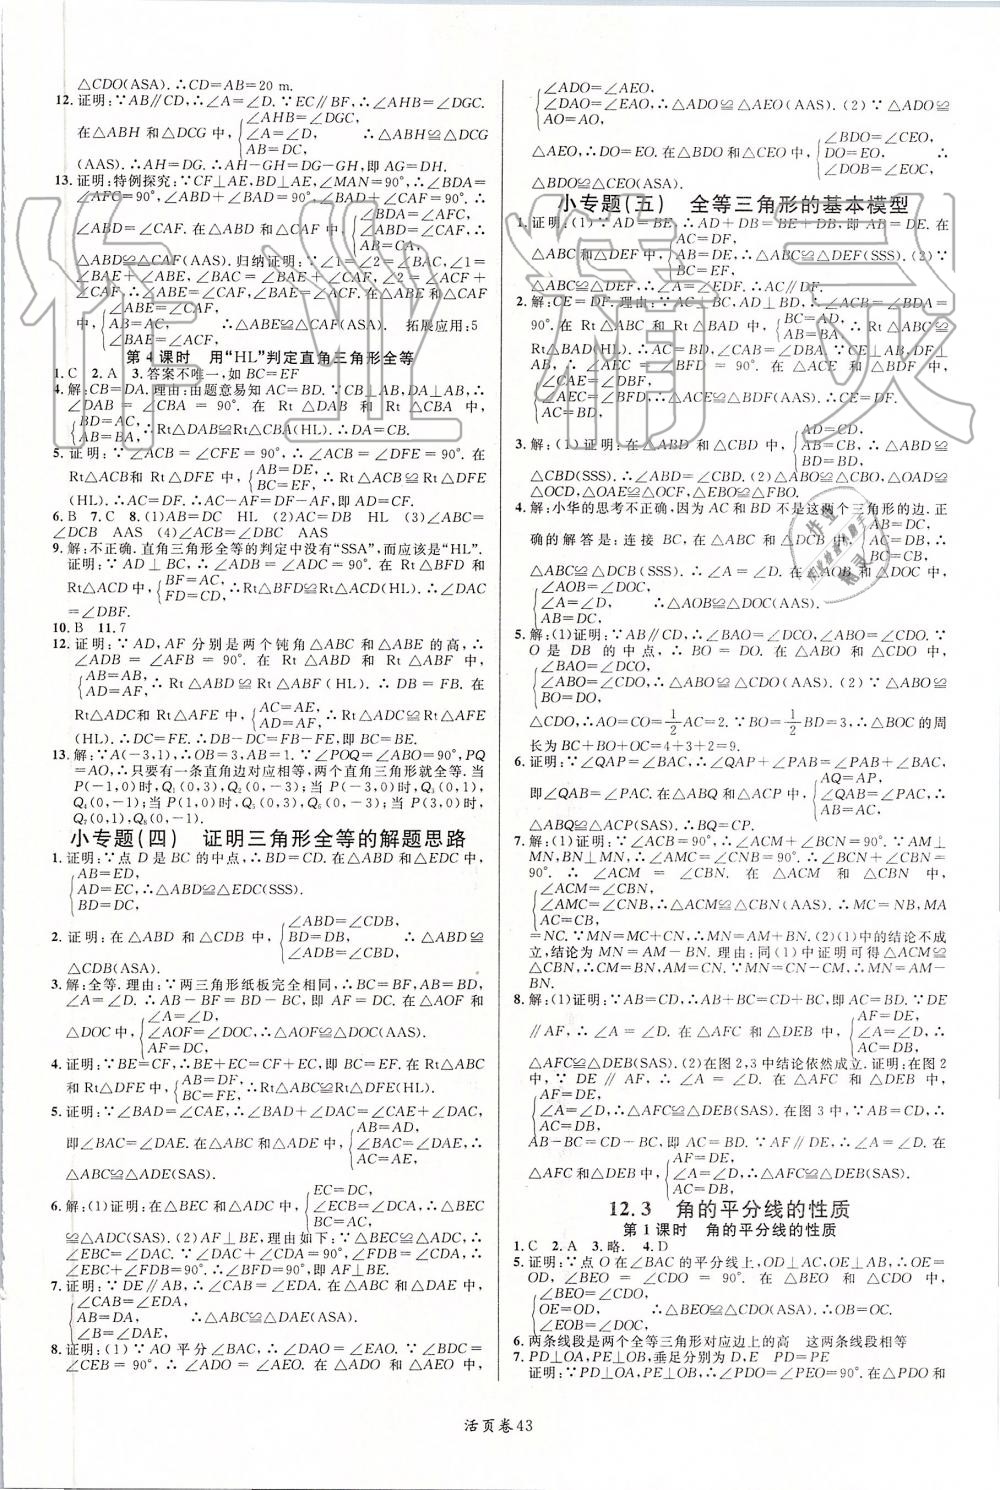 △CDO(ASA).∴CD=AB=20 m.
12.证明:∵AB∥CD,∴∠A=∠D.∵EC∥BF,∴∠AHB=∠DGC.
∠AHB=∠DGC,
在△ABH 和△DCG 中, ∠A=∠D, ∴△ABH≌△DCG
AB=DC,
(AAS).∴AH=DG.∴AH-GH=DG-GH,即 AG=DH.
13.证明:特例探究:∵CF⊥AE,BD⊥AE,∠MAN=90°,∴∠BDA=
∠AFC=90°,∠ABD+∠BAD=90°,∠BAD+∠CAF=90°.
∠BDA=∠AFC,
∴∠ABD=∠CAF.在△ABD 和△CAF 中, ∠ABD=∠CAF, ∴
AB=CA,
△ABD≌△CAF(AAS).归纳证明:∵∠1=∠2=∠BAC,∠1=
∠BAE+∠ABE,∠BAC=∠BAE+∠CAF,∠2=∠ACF+
∠CAF,∴∠ABE=∠CAF,∠BAE=∠ACF.在△ABE 和△CAF
∠ABE=∠CAF,
中, AB=AC, ∴△ABE≌△CAF(ASA). 拓展应用:5
∠BAE=∠ACF,
第 4 课时 用“HL”判定直角三角形全等
1.C 2.A 3.答案不唯一,如 BC=EF
4.解:CB=DA.理由:由题意易知 AC=BD.∵CB⊥AB,DA⊥AB,∴
∠DAB=∠CBA=90°.在 Rt△DAB 和 Rt△CBA 中,
BD=AC,
∴Rt△DAB≌Rt△CBA(HL).∴DA=CB.
AB=BA,
5.证明:∵∠ACB=∠CFE=90°,∴∠ACB=∠DFE=90°.在
Rt△ACB和 Rt△DFE中, AB=DE, ∴Rt△ACB≌Rt△DFE
BC=EF,
(HL).∴AC=DF.∴AC-AF=DF-AF,即AD=CF.
6.B 7.C 8.(1)AB=DC HL (2)AC=DB HL (3)∠ABC=
∠DCB AAS (4)∠ACB=∠DBC AAS
9.解:不正确.直角三角形全等的判定中没有“SSA”,而应该是“HL”.
证明:∵AD⊥BC,∴∠ADB=∠ADC=90°.在 Rt△BFD 和
Rt△ACD 中, BF=AC, ∴Rt△BFD≌Rt△ACD(HL).∴∠DAC=
FD=CD,
∠DBF.
10.B 11.7
12.证明:∵AD,AF 分别是两个钝角△ABC 和△ABE 的高,∴
∠ADB=∠AFB=90°.在 Rt△ABD 和 Rt△ABF 中,
AB=AB,
∴Rt△ABD≌Rt△ABF(HL).∴DB=FB.在
AD=AF,
Rt△ADC和 Rt△AFE 中, AC=AE, ∴Rt△ADC≌Rt△AFE
AD=AF,
(HL).∴DC=FE.∴DB-DC=FB-FE,即 BC=BE.
13.解:∵A(-3,1),∴OB=3,AB=1.∵∠POQ=∠ABO=90°,PQ
=AO,∴只要有一条直角边对应相等,两个直角三角形就全等.当
P(-1,0)时,Q₁(0,3),Q₂(0,-3);当 P(-3,0)时,Q₃(0,1),
Q₄(0,-1);当 P(1,0)时,Q₅(0,3),Q₆(0,-3);当 P(3,0)时,
Q₇(0,1),Q₈(0,-1).
小专题(四) 证明三角形全等的解题思路
1.证明:∵点 D 是 BC 的中点,∴BD=DC.在△ABD 和△EDC 中,
AB=ED,
AD=EC,∴△ABD≌△EDC(SSS).
BD=DC,
∠ABD=∠CDB,
2.证明:在△ABD 和△CDB 中, BD=DB, ∴△ABD≌
∠ADB=∠CBD,
△CDB(ASA).
3.解:全等.理由:∵两三角形纸板完全相同,∴BC=BF,AB=BD,
∠A=∠D.∴AB-BF=BD-BC,即 AF=DC.在△AOF 和
∠A=∠D,
△DOC中, ∠AOF=∠DOC,∴△AOF≌△DOC(AAS).
AF=DC,
4.证明:∵BE=CF,∴BE+EC=CF+EC,即 BC=EF.在 Rt△ABC
和 Rt△DFE 中, AB=DF, ∴Rt△ABC≌Rt△DFE(HL).
BC=FE,
5.证明:∵∠BAD=∠CAE,∴∠BAD+∠DAC=∠CAE+∠DAC,
AB=AD,
即∠BAC=∠DAE.在△ABC 和△ADE 中, ∠BAC=∠DAE,∴
AC=AE,
△ABC≌△ADE(SAS).
EC=DC,
6.解:(1)证明:在△BEC 和△ADC 中, ∠ECB=∠DCA,∴△BEC≌
BC=AC,
△ADC(SAS).(2)AF⊥BE,理由如下:∵△BEC≌△ADC,∴
∠EBC=∠DAC.∵∠DAC+∠ADC=90°,∠FDB=∠ADC,∴
∠EBC+∠FDB=90°.∴∠BFD=90°,即 AF⊥BE.
7.证明:∵DE∥AB,∴∠CAB=∠EDA.在△ABC 和△DAE 中,
∠CAB=∠EDA,
AB=DA, ∴△ABC≌△DAE(ASA).
∠B=∠DAE,
8.证明:(1)∵AO 平分∠BAC,∴∠DAO=∠EAO.∵∠BDC=
∠CEB=90°,∴∠ADO=∠AEO.在△DAO 和△EAO 中,
∠ADO=∠AEO,
∠DAO=∠EAO,∴△ADO≌△AEO(AAS).(2)∵△ADO≌
AO=AO,
∠BDO=∠CEO,
△AEO,∴DO=EO.在△BDO 和△CEO 中, DO=EO, ∴
∠DOB=∠EOC,
△BDO≌△CEO(ASA).
小专题(五) 全等三角形的基本模型
1.证明:(1)∵AD=BE,∴AD+DB=BE+DB,即 AB=DE.在
AC=DF,
△ABC 和△DEF 中, AB=DE,∴△ABC≌△DEF(SSS).(2)∵
BC=EF,
△ABC≌△DEF,∴∠A=∠EDF.∴AC∥DF.
2.解:CE=DF.理由:∵AC⊥BC,AD⊥BD,∴∠ACB=∠BDA=
90°.在 Rt△ABC 和 Rt△BAD 中, AB=BA, ∴Rt△ABC≌
BC=AD,
Rt△BAD(HL).∴AC=BD,∠CAB=∠DBA.∵CE⊥AB,DF⊥
AB,∴∠AEC=∠BFD=90°.在△ACE 和△BDF 中,
∠CAE=∠DBF,
∠AEC=∠BFD,∴△ACE≌△BDF(AAS).∴CE=DF.
AC=BD,
AD=CD,
3.解:(1)证明:在△ABD 和△CBD 中, AB=CB,∴△ABD≌
BD=BD,
△CBD(SSS).∴∠ABD=∠CBD.(2)△ABO≌△CBO,△OAD≌
△OCD,△OAE≌△OCF,△EBO≌△FBO.
4.解:小华的思考不正确,因为 AC 和 BD 不是这两个三角形的边.正
确的解答是:连接 BC,在△ABC
△ABC≌△DCB(SSS).∴∠A=∠D.在△AOB 和△DOC 中,
∠AOB=∠DOC,
∠A=∠D, ∴△AOB≌△DOC(AAS).
AB=DC,
5.解:(1)证明:∵AB∥CD,∴∠BAO=∠DCO,∠ABO=∠CDO.∵
O 是 DB 的中点,∴BO=DO.在△ABO 和△CDO 中,
∠BAO=∠DCO,
∠ABO=∠CDO,∴△ABO≌△CDO(AAS).(2)∵△ABO≌
BO=DO,
△CDO,∴AO=CO=1/2AC=2.∵BO=1/2BD=3,∴△BOC的周
长为BC+BO+OC=4+3+2=9.
6.证明:∵∠QAP=∠BAC,∴∠QAP+∠PAB=∠PAB+∠BAC,
AQ=AP,
即∠QAB=∠PAC.在△ABQ 和△ACP 中, ∠QAB=∠PAC,∴
AB=AC,
△ABQ≌△ACP(SAS).
7.解:(1)证明:∵∠ACB=90°,∴∠ACM+∠BCN=90°.∵AM⊥
MN,BN⊥MN,∴∠AMC=∠CNB=90°.∴∠BCN+∠CBN=
90°.∴∠ACM=∠CBN.在△ACM 和△CBN 中,
∠ACM=∠CBN,
∠AMC=∠CNB,∴△ACM≌△CBN(AAS).∴MC=NB,MA
AC=CB,
=NC.∵MN=MC+CN,∴MN=AM+BN.(2)(1)中的结论不成
立,结论为 MN=AM-BN.理由:同(1)中证明可得△ACM≌
△CBN,∴CM=BN,AM=CN.∵MN=CN-CM,∴MN=AM-
BN.
8.解:(1)证明:∵AB=CD,∴AB+BC=CD+BC,即AC=BD.∵DE
AF=DE,
∥AF,∴∠A=∠D.在△AFC 和△DEB 中, ∠A=∠D,∴
AC=DB,
△AFC≌△DEB(SAS).(2)在图2,3中结论依然成立.证明:在图2
中,∵DE∥AF,∴∠A=∠D.在△AFC 和△DEB 中,
AF=DE,
∠A=∠D,∴△AFC≌△DEB(SAS).在图3中,∵AB=CD,∴
AC=DB,
AB-BC=CD-BC,即 AC=BD.∵AF∥DE,∴∠A=∠D.在
AF=DE,
△AFC 和△DEB 中, ∠A=∠D,∴△AFC≌△DEB(SAS).
AC=DB,
12.3 角的平分线的性质
第 1 课时 角的平分线的性质
1.C 2.A 3.略. 4.D
5.证明:∵点 O 在∠BAC 的平分线上,OD⊥AC,OE⊥AB,∴OE=
OD,∠BEO=∠CDO=90°.在△BEO 和△CDO 中,
∠BEO=∠CDO,
OE=OD, ∴△BEO≌△CDO(ASA).∴OB=OC.
∠EOB=∠DOC,
6.两条线段是两个全等三角形对应边上的高 这两条线段相等
7.PD⊥OA,PE⊥OB,垂足分别为 D,E PD=PE
证明:∵PD⊥OA,PE⊥OB,∴∠PDO=∠PEO=90°.在△PDO 和
活页卷 43
作业精灵